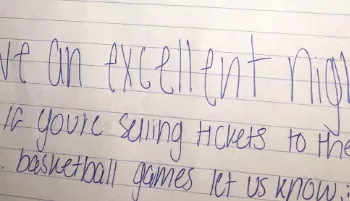 ve an excellent nig
if you're selling tickets to the
basketball games let us know :